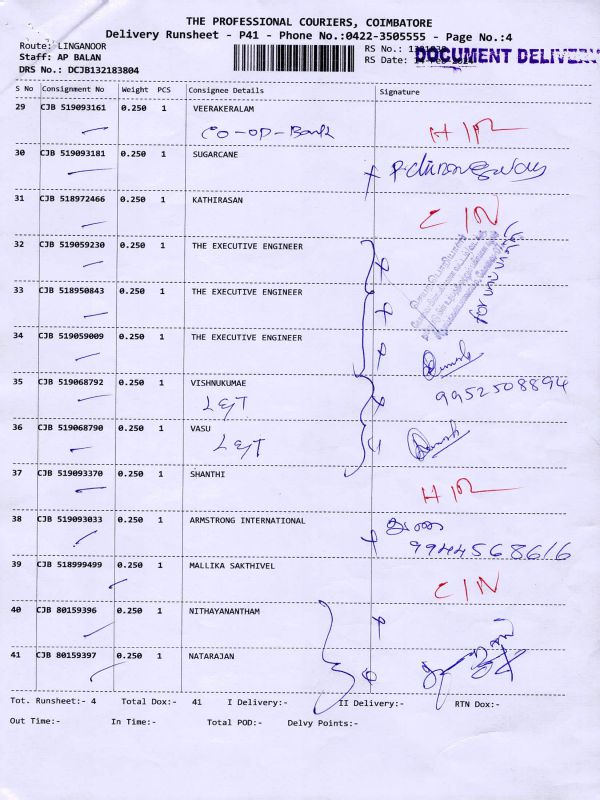 THE PROFESSIONAL COURIERS, COIMBATORE
Delivery Runsheet - P41 - Phone No.:0422-3505555 - Page No.:4
Route: LINGANOOR
RS No.:
Staff: AP BALAN
RS Date:
DOCUMENT DELIVERY
DRS No.: DCJB132183804
S No Consignment No Weight PCS Consignee Details Signature
29 CJB 519093161 0.250 1 VEERAKERALAM
CO-OP-Bank
30 CJB 519093181 0.250 1 SUGARCANE
31 CJB 518972466 0.250 1 KATHIRASAN
C/N
32 CJB 519059230 0.250 1 THE EXECUTIVE ENGINEER
33 CJB 518950843 0.250 1 THE EXECUTIVE ENGINEER
34 CJB 519059009 0.250 1 THE EXECUTIVE ENGINEER
35 CJB 519068792 0.250 1 VISHNUKUMAE
9952508894
36 CJB 519068790 0.250 1 VASU
37 CJB 519093370 0.250 1 SHANTHI
38 CJB 519093033 0.250 1 ARMSTRONG INTERNATIONAL
9944568616
39 CJB 518999499 0.250 1 MALLIKA SAKTHIVEL
C/N
40 CJB 80159396 0.250 1 NITHAYANANTHAM
41 CJB 80159397 0.250 1 NATARAJAN
Tot. Runsheet:- 4 Total Dox:- 41 I Delivery:- II Delivery:- RTN Dox:-
Out Time:- In Time:- Total POD:- Delvy Points:-